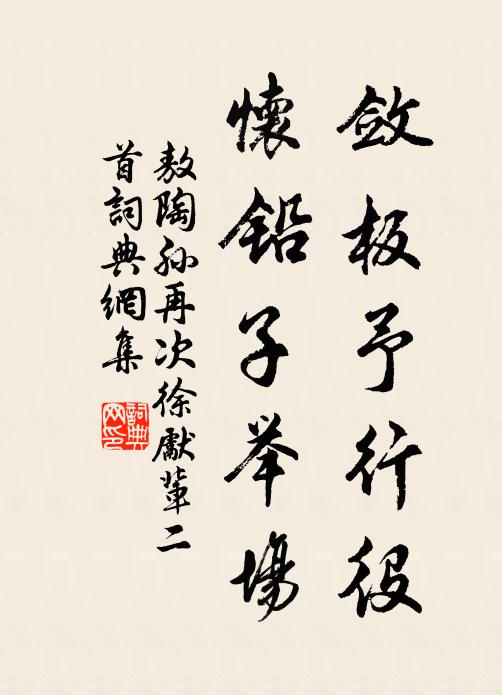 斂板予行役
懷鉛子举場
敖陶孙再次徐獻輩二
首詞典網集
詞典
网印